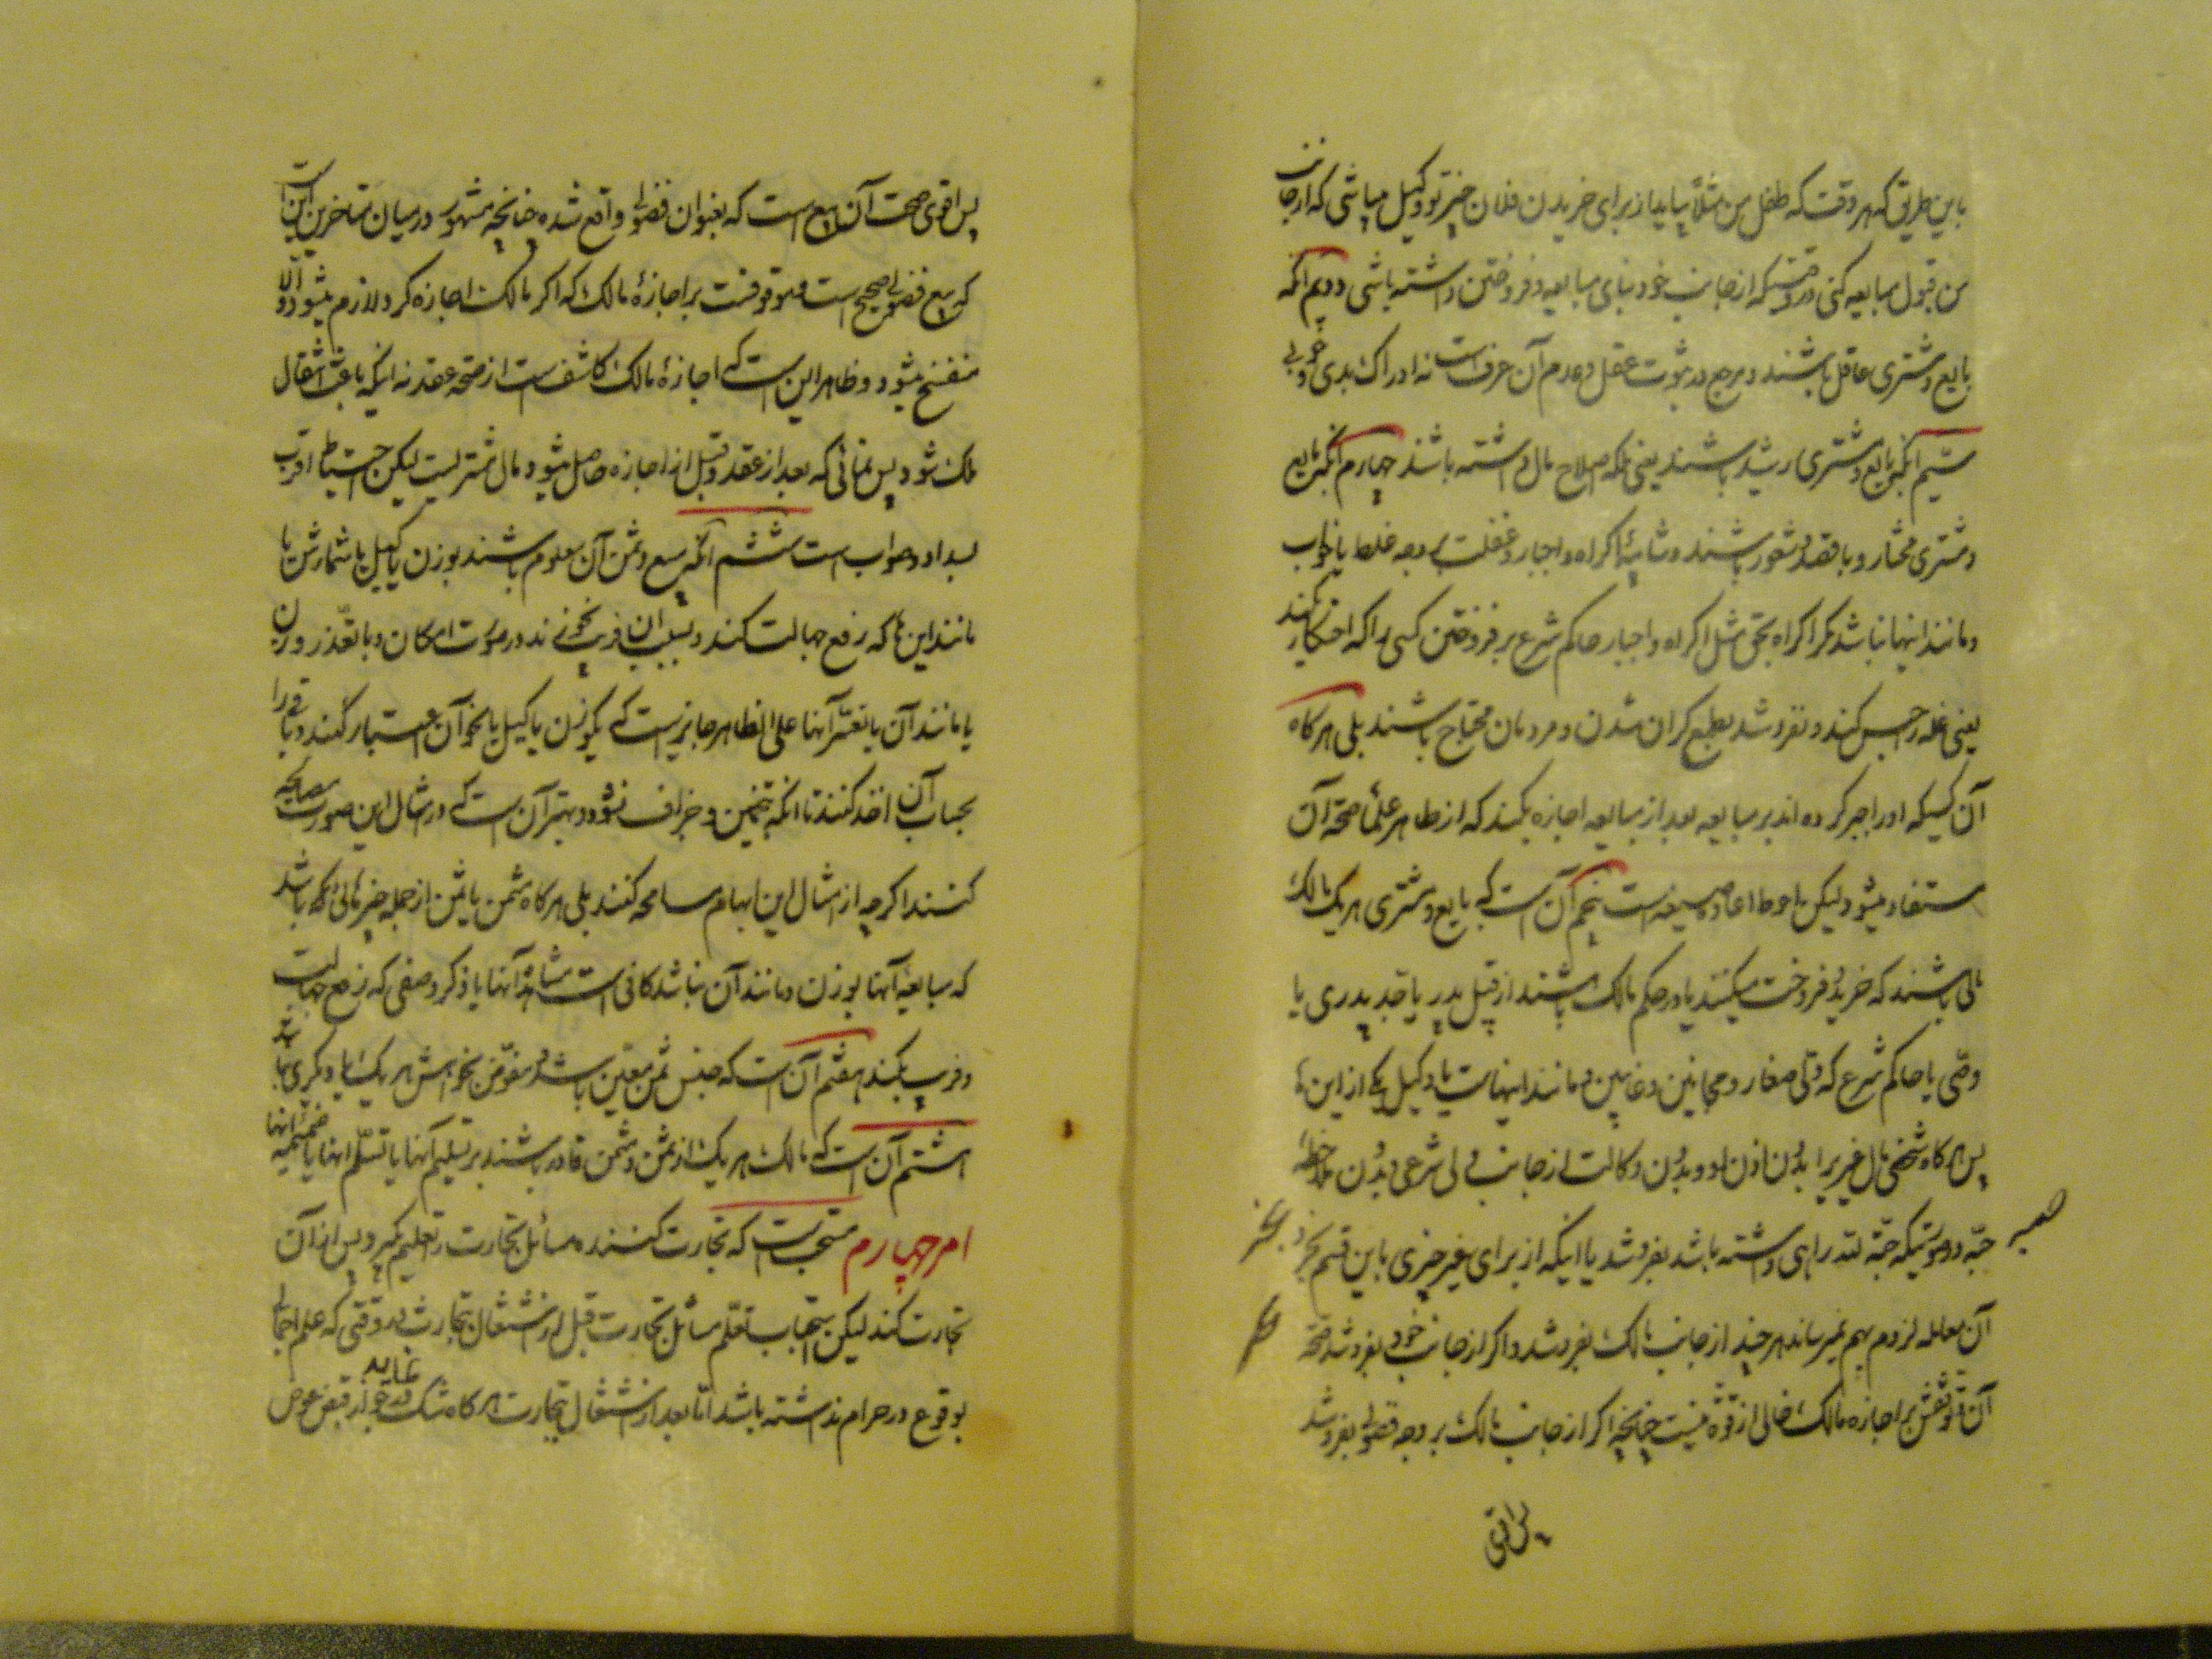 باین طریق که هر وقت که طفل من مثلاً بیاید از برای خریدن فلان چیز تو وکیل میباشی که از جانب
من قبول مبایعه کنی در وقتیکه از جانب خود بنای مبایعه و فروختن داشته باشی دویم آنکه
بایع و مشتری عاقل باشند و مرجع در ثبوت عقل و عدم آن عرف است نه ادراک بدی و خوبی
سیّم آنکه بایع و مشتری رشید باشند یعنی ملکه اصلاح مال داشته باشند چهارم آنکه بایع
و مشتری مختار و با قصد و شعور باشند و شائبهٔ اکراه و اجبار و غفلت بر وجه غلط یا خواب
و مانند اینها نباشد مکر اکراه بحق مثل اکراه و اجبار حاکم شرع بر فروختن کسی را که احتکار کند
یعنی غله را حبس کند و نفروشد بطمع کران شدن و مردمان محتاج باشند بلی هر کاه
آن کسیکه او را جبر کرده اند بر مبایعه بعد از مبایعه اجازه بکند که از ظاهر علما صحّة آن
مستفاد میشود لیکن احوط اعاده صیغه است پنجم آن است که بایع و مشتری هر یک مالک
مالی باشند که خرید و فروخت میکنند یا در حکم مالک باشند از قبیل پدر یا جد پدری یا
وصّی یا حاکم شرع که ولّی صغار و مجانین و غایبین و مانند اینهاست یا وکیل یکی از این ها
پس هر کاه شخصی مال غیر را بدون اذن او و بدون وکالت از جانب ولی شرعی و بدون ملاحظه
حسبه در صورتیکه حسبة لله راهی داشته باشد بفروشد یا اینکه از برای غیر چیزی باین قسم بخرد
آن معامله لزوم بهم نمیرساند هر چند از جانب مالک بفروشد و اکر از جانب خود بفروشد صحّة
آن و توقفش بر اجازه مالک خالی از قوّة نیست چنانچه اکر از جانب مالک بر وجه فضولی بفروشد
پس اقوی صحت آن بیع است که بعنوان فضولی واقع شده چنانچه مشهور در میان متاخرین این است
که بیع فضولی صحیح است و موقوفست بر اجازهٔ مالک که اکر مالک اجازه کرد لازم میشود و الا
منفسخ میشود و ظاهر این است که اجازهٔ مالک کاشف است از صحّة عقد نه اینکه باعث انتقال
ملک شود پس نمائی که بعد از عقد و قبل از اجازه حاصل میشود مال مشتریست لیکن احتیاط اقرب
بسداد و صواب است ششم آنکه مبیع و ثمن آن معلوم باشند بوزن یا کیل یا شمارش یا
مانند این ها که رفع جهالت کند و بسبب آن فریب نخورند در صورت امکان و با تعذّر وزن
یا مانند آن یا تعسّر آنها علی الظاهر جایز است که یکوزن یا کیل یا نحو آن اعتبار کنند و باقی را
بحساب آن اخذ کنند تا آنکه تخمین و جزاف نشود و بهتر آن است که در امثال این صورت مصالحه
کنند اکر چه از امثال این ابهام مسامحه کنند بلی هر کاه مثمن یا ثمن از جمله چیزهائی باشد
که مبایعهٔ آنها بوزن و مانند آن نباشد کافی است مشاهدهٔ آنها یا ذکر وصفی که رفع جهالت
و فریب بکند هفتم آن است که جنس ثمن معیّن باشد و مفوّض بخواهش هر یک یا دیگری نباشد
هشتم آن است که مالک هر یک از ثمن و مثمن قادر باشند بر تسلیم آنها یا تسلّم آنها یا ضمیمه آنها
امر چهارم مستحب است که تجارت کننده مسائل تجارت را تعلیم کیرد پس از آن
تجارت کند لیکن استحباب تعلّم مسائل تجارت قبل از اشتغال بتجارت در وقتی که علم اجمالی
بوقوع در حرام نداشته باشد امّا بعد از اشتغال بتجارت هر کاه شک در جواز قبض عوض
عاید